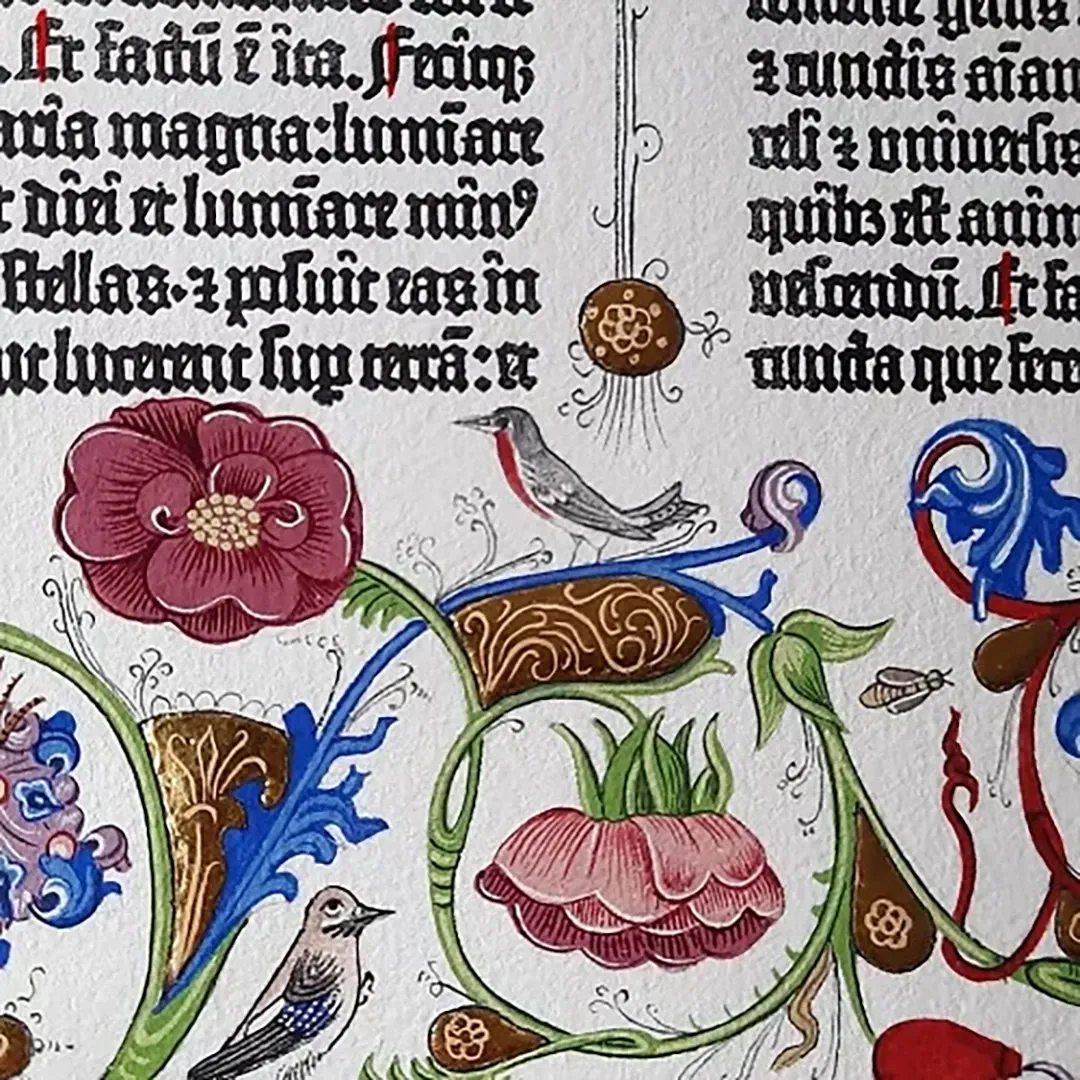 . Et factū ē ita. Fecitqꝫ
aria magna: lumīare
t diei et lumīare minꝰ
ſtellas· ⁊ poſuit eas in
ut lucerent ſuꝑ terrā: et
⁊ cunctis aīan
celi ⁊ univerſis
quibꝫ eſt anim
veſcendū. Et fa
cuncta que fece